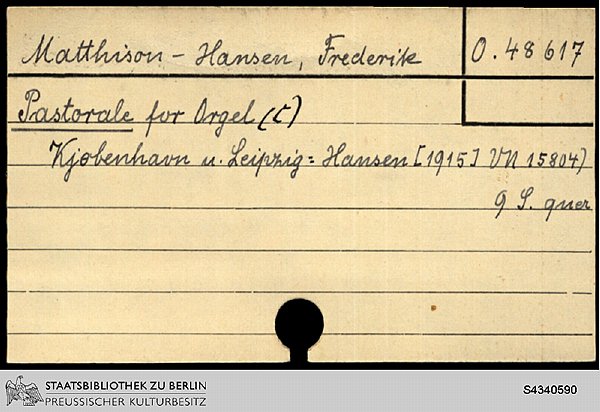 Matthison-Hansen, Frederik
O. 48617
Pastorale for Orgel (C)
Kjøbenhavn u. Leipzig: Hansen [1915] VN 15804)
9 S. quer
STAATSBIBLIOTHEK ZU BERLIN
PREUSSISCHER KULTURBESITZ
S4340590